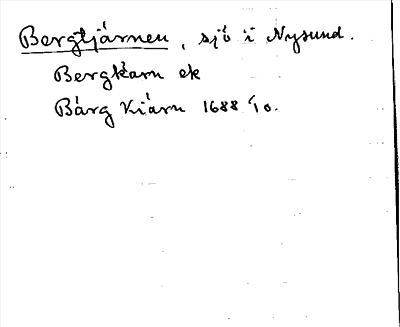 Bergtjärnen, sjö i Nysund.
Bergkärn ek
Bärg Kiärn 1688 1/10.